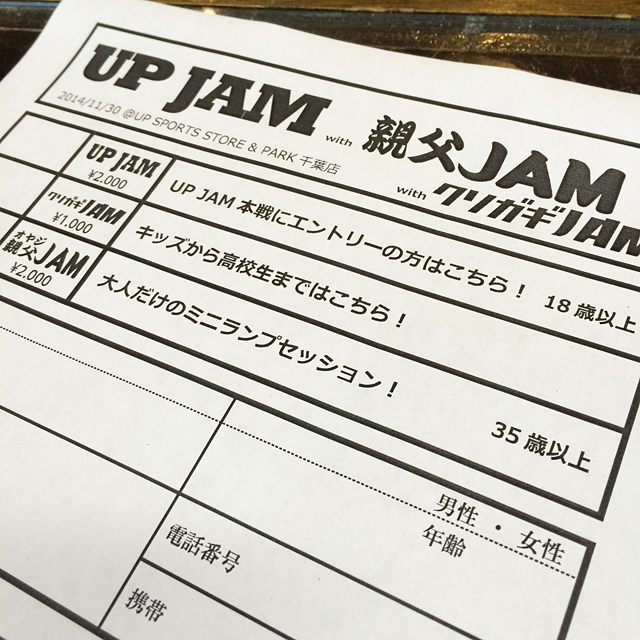 UP JAM with 親父JAM
2014/11/30 @UP SPORTS STORE & PARK 千葉店
with クソガギJAM
UP JAM
¥2.000
UP JAM 本戦にエントリーの方はこちら！ 18歳以上
クソガギJAM
¥1.000
キッズから高校生まではこちら！
オヤジ
親父JAM
¥2.000
大人だけのミニランプセッション！
35歳以上
男性 ・ 女性
年齢
電話番号
携帯